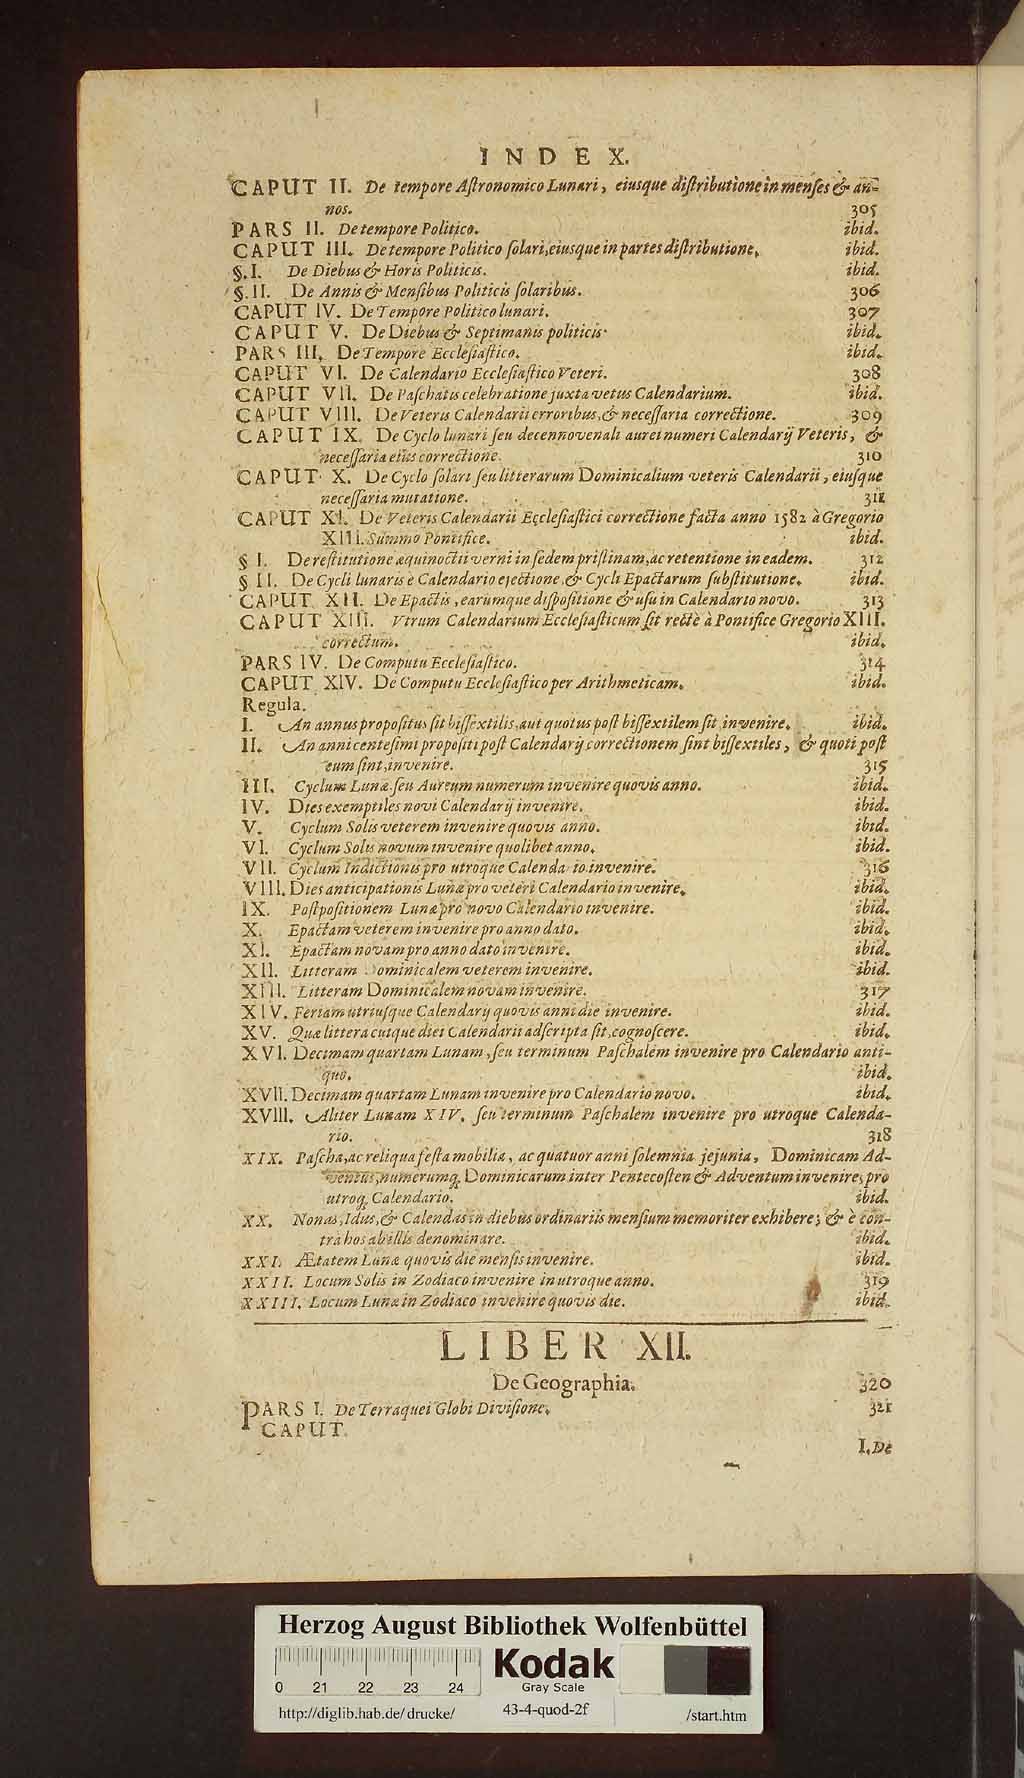 INDEX.
CAPUT II. De tempore Aſtronomico Lunari, eiusque diſtributione in menſes & an-
nos. 305
PARS II. De tempore Politico. ibid.
CAPUT III. De tempore Politico ſolari, eiusque in partes diſtributione. ibid.
§. I. De Diebus & Horis Politicis. ibid.
§. II. De Annis & Menſibus Politicis ſolaribus. 306
CAPUT IV. De Tempore Politico lunari. 307
CAPUT V. De Diebus & Septimanis politicis. ibid.
PARS III. De Tempore Eccleſiaſtico. ibid.
CAPUT VI. De Calendario Eccleſiaſtico Veteri. 308
CAPUT VII. De Paſchatis celebratione juxta vetus Calendarium. ibid.
CAPUT VIII. De Veteris Calendarii erroribus, & neceſſaria correctione. 309
CAPUT IX. De Cyclo lunari ſeu decennovenali aurei numeri Calendarij Veteris, &
neceſſaria eius correctione. 310
CAPUT X. De Cyclo ſolari ſeu litterarum Dominicalium veteris Calendarii, eiuſque
neceſſaria mutatione. 311
CAPUT XI. De Veteris Calendarii Eccleſiaſtici correctione facta anno 1582 à Gregorio
XIII. Summo Pontifice. ibid.
§ I. De reſtitutione æquinoctii verni in ſedem priſtinam, ac retentione in eadem. 312
§ II. De Cycli lunaris è Calendario ejectione, & Cycli Epactarum ſubſtitutione. ibid.
CAPUT XII. De Epactis, earumque diſpoſitione & uſu in Calendario novo. 313
CAPUT XIII. Vtrum Calendarium Eccleſiaſticum ſit rectè à Pontifice Gregorio XIII.
correctum. ibid.
PARS IV. De Computu Eccleſiaſtico. 314
CAPUT XIV. De Computu Eccleſiaſtico per Arithmeticam. ibid.
Regula.
I. An annus propoſitus ſit biſſextilis, aut quotus poſt biſſextilem ſit, invenire. ibid.
II. An anni centeſimi propoſiti poſt Calendarij correctionem ſint biſſextiles, & quoti poſt
eum ſint, invenire. 315
III. Cyclum Lunæ ſeu Aureum numerum invenire quovis anno. ibid.
IV. Dies exemptiles novi Calendarij invenire. ibid.
V. Cyclum Solis veterem invenire quovis anno. ibid.
VI. Cyclum Solis novum invenire quolibet anno. ibid.
VII. Cyclum Indictionis pro utroque Calenda io invenire. 316
VIII. Dies anticipationis Lunæ pro veteri Calendario invenire. ibid.
IX. Poſtpoſitionem Lunæ pro novo Calendario invenire. ibid.
X. Epactam veterem invenire pro anno dato. ibid.
XI. Epactam novam pro anno dato invenire. ibid.
XII. Litteram Dominicalem veterem invenire. ibid.
XIII. Litteram Dominicalem novam invenire. 317
XIV. Feriam utriuſque Calendarij quovis anni die invenire. ibid.
XV. Quæ littera cuique diei Calendarii adſcripta ſit, cognoſcere. ibid.
XVI. Decimam quartam Lunam, ſeu terminum Paſchalem invenire pro Calendario anti-
quo. ibid.
XVII. Decimam quartam Lunam invenire pro Calendario novo. ibid.
XVIII. Aliter Lunam XIV. ſeu terminum Paſchalem invenire pro utroque Calenda-
rio. 318
XIX. Paſcha, ac reliqua feſta mobilia, ac quatuor anni ſolemnia jejunia, Dominicam Ad-
ventus, numerumq; Dominicarum inter Pentecoſten & Adventum invenire, pro
utroq; Calendario. ibid.
XX. Nonas, Idus, & Calendas in diebus ordinariis menſium memoriter exhibere; & è con-
tra hos ab illis denominare. ibid.
XXI. Ætatem Lunæ quovis die menſis invenire. ibid.
XXII. Locum Solis in Zodiaco invenire in utroque anno. 319
XXIII. Locum Lunæ in Zodiaco invenire quovis die. ibid.
LIBER XII.
De Geographia. 320
PARS I. De Terraquei Globi Diviſione. 321
CAPUT.
I. De
Herzog August Bibliothek Wolfenbüttel
0 21 22 23 24
Kodak
Gray Scale
http://diglib.hab.de/drucke/ 43-4-quod-2f /start.htm